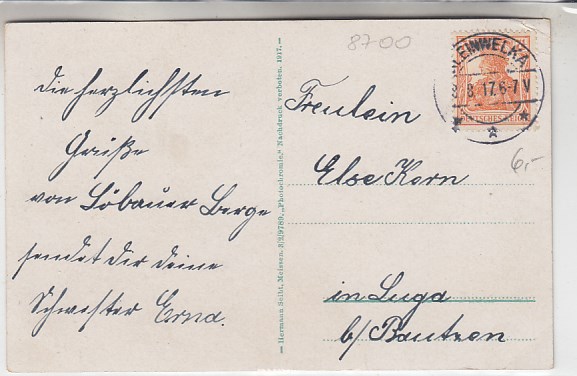 die herzlichsten
Grüße
von Löbauer Berge
sendet Dir deine
Schwester Erna.
— Hermann Seibt, Meissen. 3/2/9789. „Photochromie.“ Nachdruck verboten. 1917. —
8700
KLEINWELKA
8.17.6-7V
DEUTSCHES REICH
6,-
Freulein
Else Korn
in Luga
b/ Bautzen